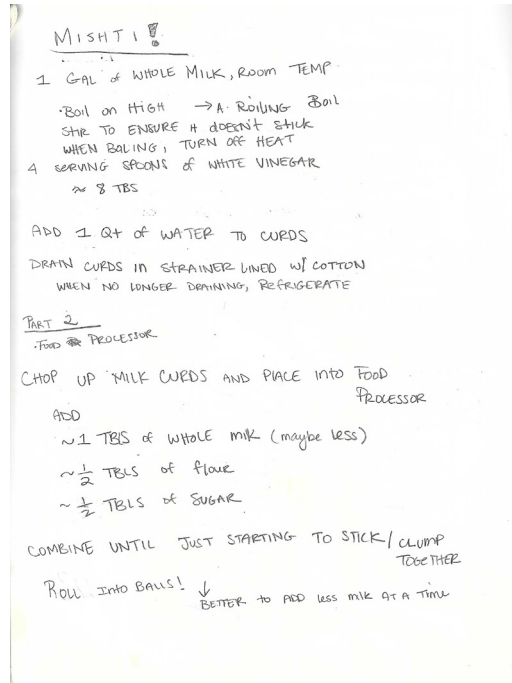 MISHTI!
1 GAL of WHOLE MILK, ROOM TEMP
·BOIL ON HIGH → A ROILING BOIL
STIR TO ENSURE IT DOESN'T STICK
WHEN BOLING, TURN OFF HEAT
4 SERVING SPOONS of WHITE VINEGAR
≈ 8 TBS
ADD 1 Qt of WATER TO CURDS
DRAIN CURDS IN STRAINER LINED W/ COTTON
WHEN NO LONGER DRAINING, REFRIGERATE
PART 2
·FOOD PROCESSOR
CHOP UP MILK CURDS AND PLACE INTO FOOD
PROCESSOR
ADD
~1 TBLS of WHOLE MILK (maybe less)
~ 1/2 TBLS of flour
~ 1/2 TBLS of SUGAR
COMBINE UNTIL JUST STARTING TO STICK/CLUMP
TOGETHER
ROLL INTO BALLS! ↓
BETTER to ADD less milk AT A Time